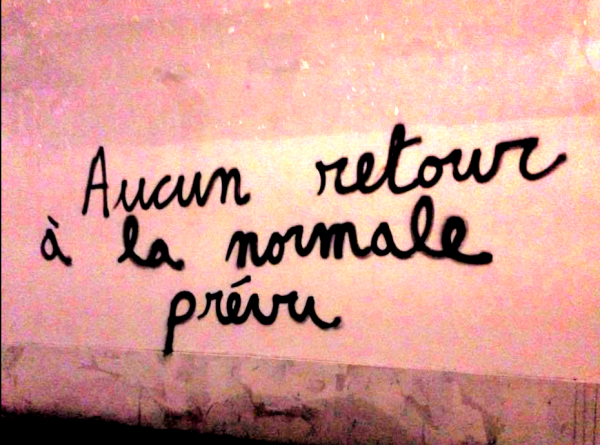 Aucun retour
à la normale
prévu